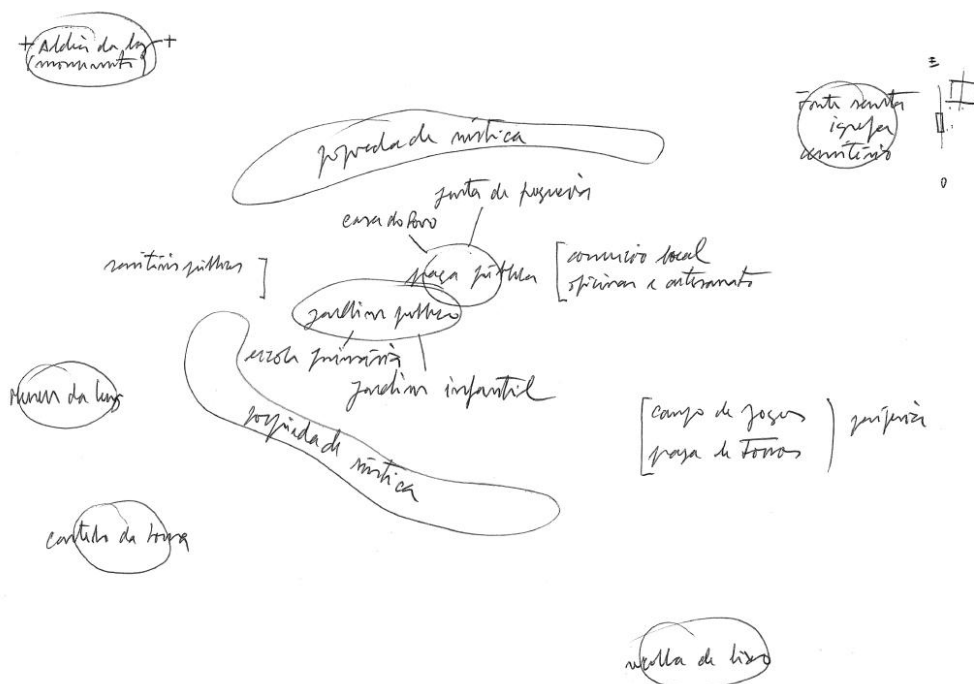 + Aldeia da luz +
(monumento)
Fonte santa
igreja
cemitério
E
O
propriedade rústica
junta de freguesia
casa do Povo
praça pública
[comércio local
oficinas e artesanato
sanitários públicos ]
jardim público
escola primária
jardim infantil
Museu da luz
propriedade rústica
[campo de jogos
praça de Touros ) periferia
castelo da Lousa
recolha de lixo